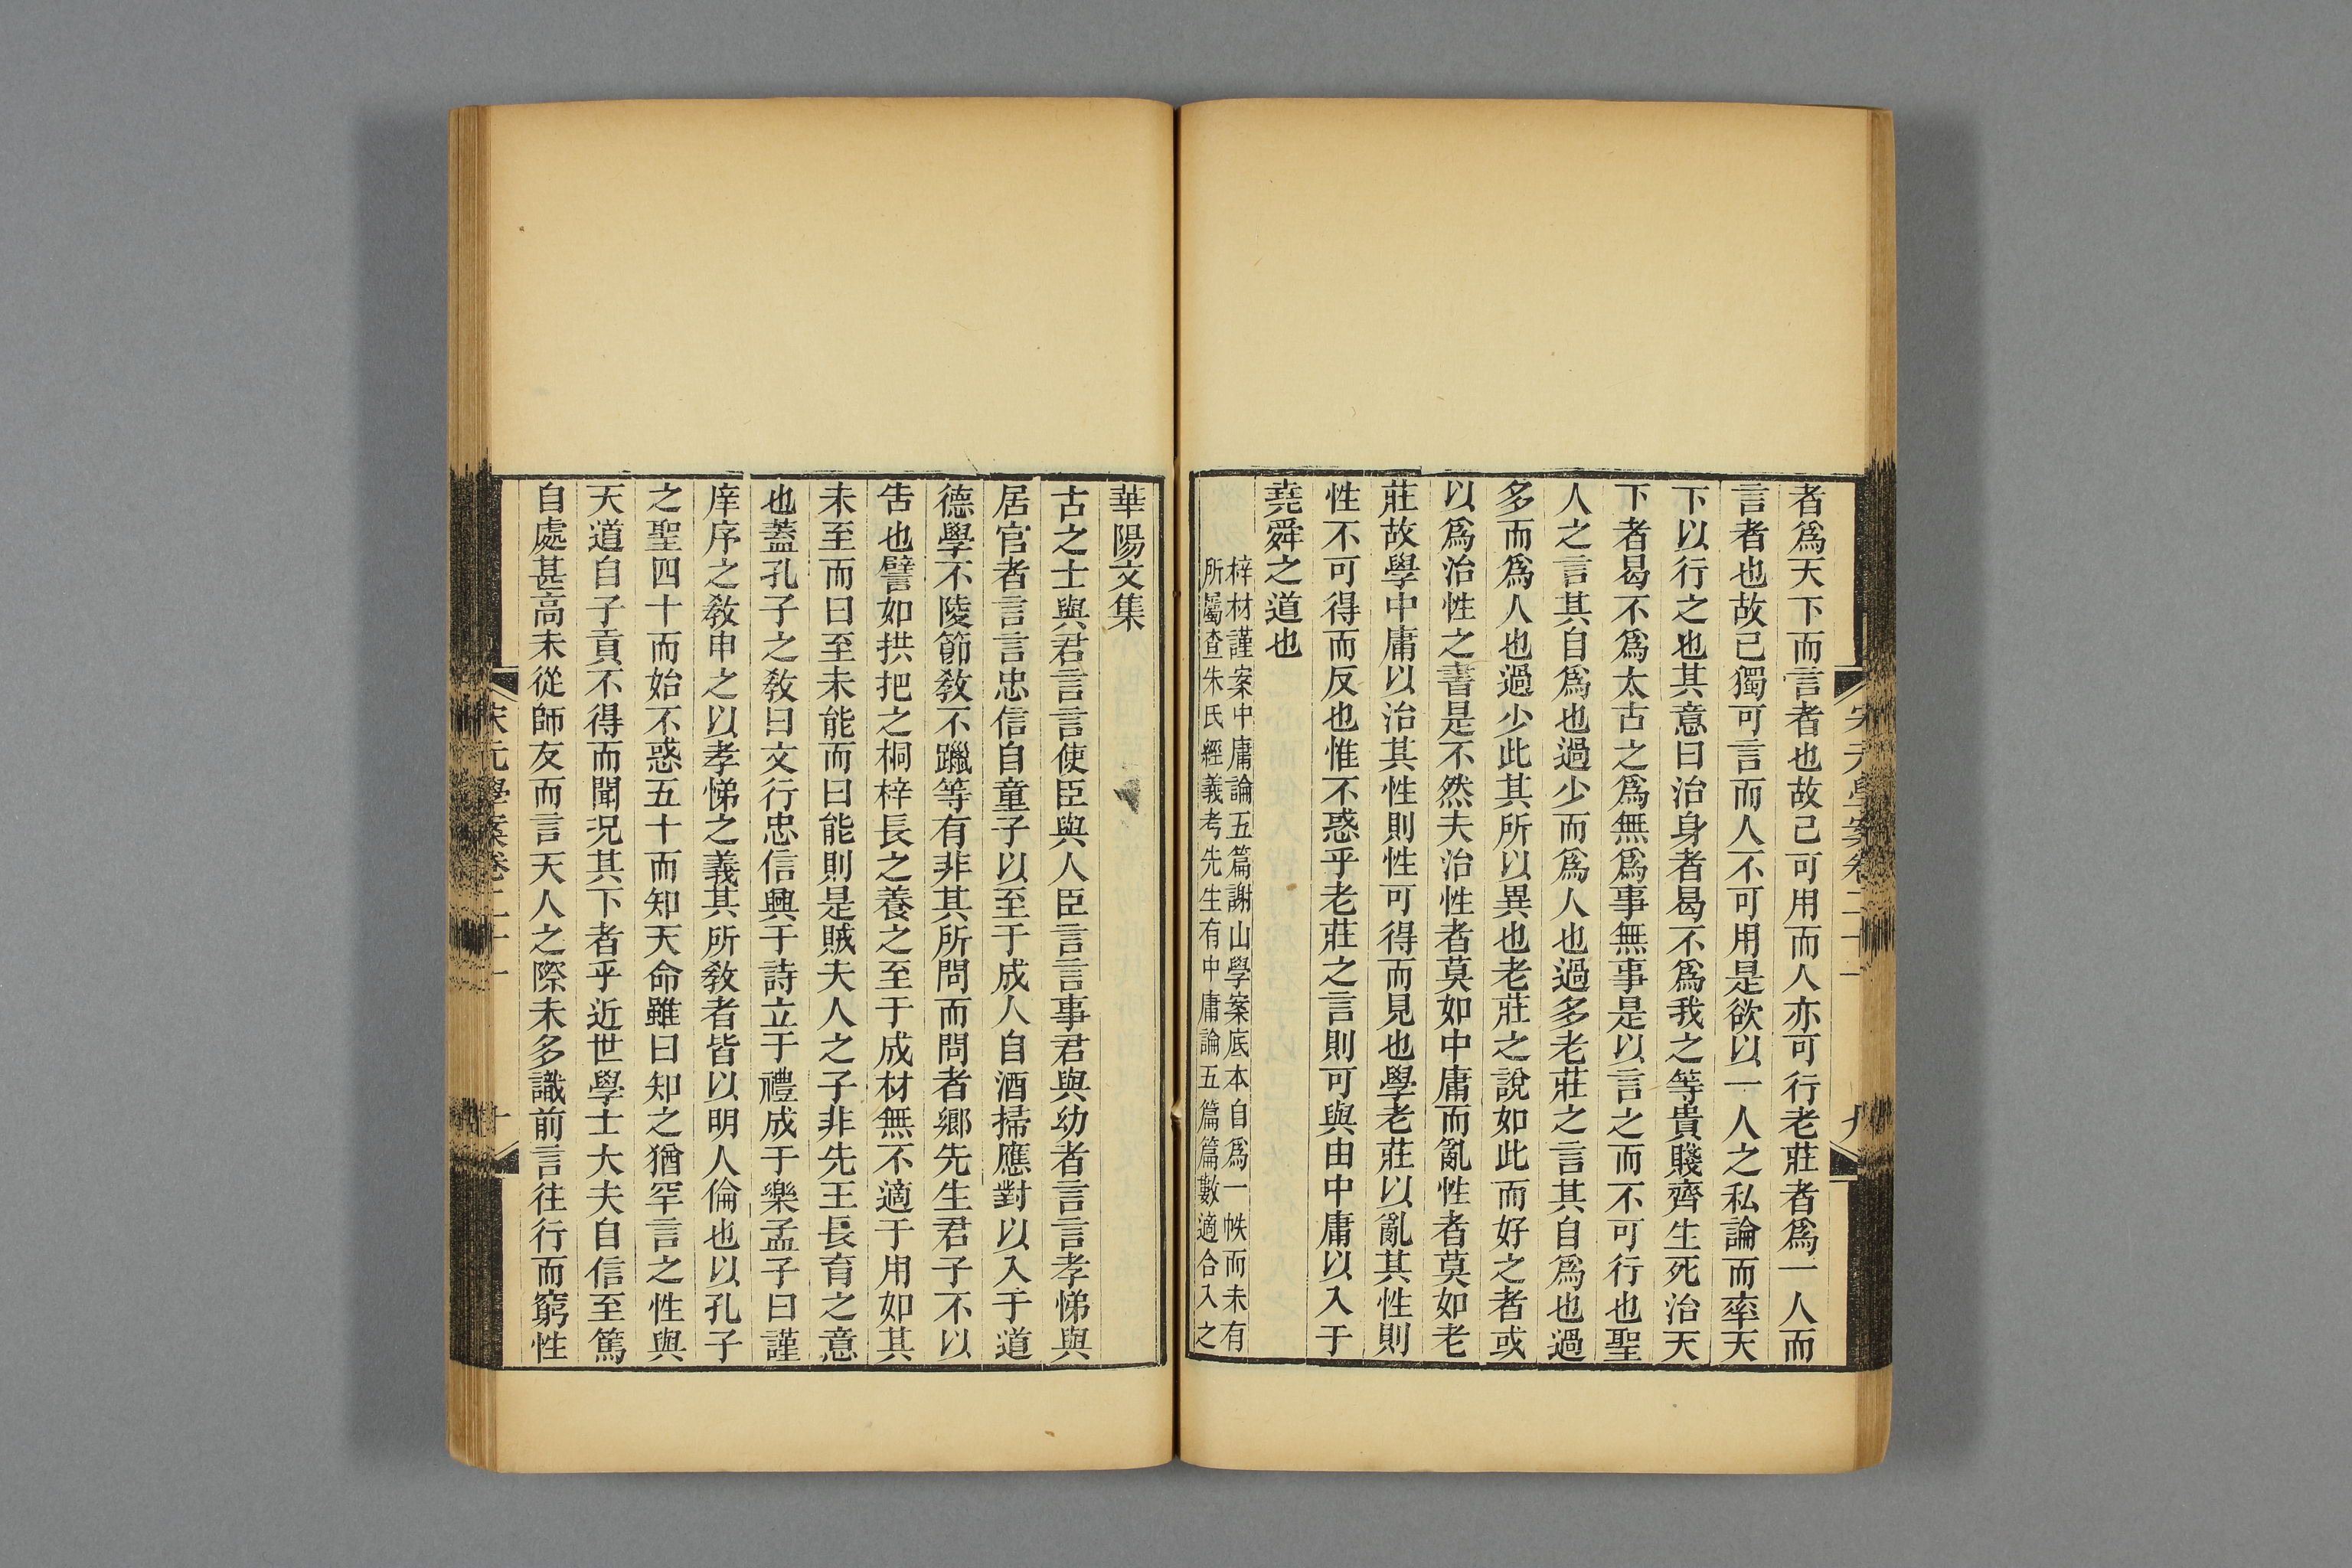 者爲天下而言者也故己可用而人亦可行老莊者爲一人而
言者也故己獨可言而人不可用是欲以一人之私論而率天
下以行之也其意曰治身者曷不爲我之等貴賤齊生死治天
下者曷不爲太古之爲無爲事無事是以言之而不可行也聖
人之言其自爲也過少而爲人也過多老莊之言其自爲也過
多而爲人也過少此其所以異也老莊之說如此而好之者或
以爲治性之書是不然夫治性者莫如中庸而亂性者莫如老
莊故學中庸以治其性則性可得而見也學老莊以亂其性則
性不可得而反也惟不惑乎老莊之言則可與由中庸以入于
堯舜之道也
梓材謹案中庸論五篇謝山學案底本自爲一帙而未有
所屬查朱氏經義考先生有中庸論五篇篇數適合入之
華陽文集
古之士與君言言使臣與人臣言言事君與幼者言言孝悌與
居官者言言忠信自童子以至于成人自洒掃應對以入于道
德學不陵節敎不躐等有非其所問而問者鄉先生君子不以
吿也譬如拱把之桐梓長之養之至于成材無不適于用如其
未至而曰至未能而曰能則是賊夫人之子非先王長育之意
也蓋孔子之敎曰文行忠信興于詩立于禮成于樂孟子曰謹
庠序之敎申之以孝悌之義其所敎者皆以明人倫也以孔子
之聖四十而始不惑五十而知天命雖曰知之猶罕言之性與
天道自子貢不得而聞況其下者乎近世學士大夫自信至篤
自處甚高未從師友而言天人之際未多識前言往行而窮性
宋元學案卷二十一